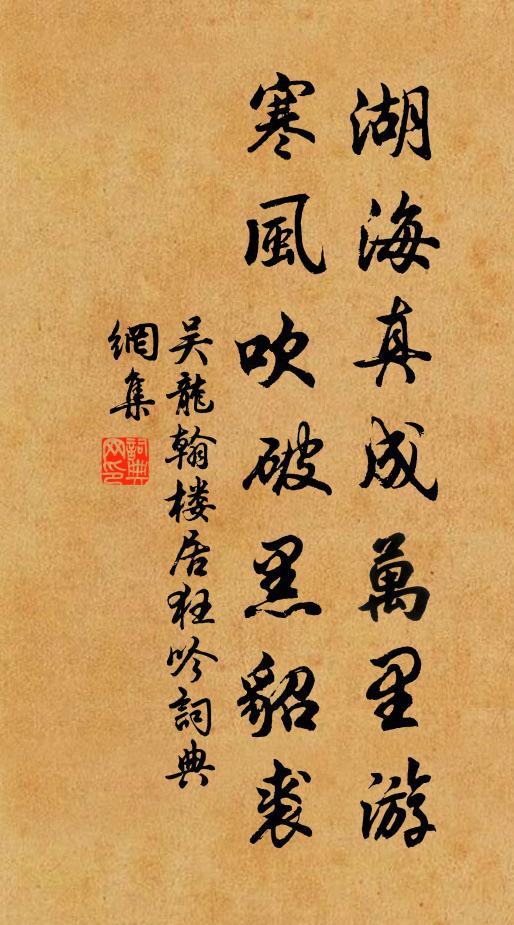 湖海真成萬里游
寒風吹破黑貂裘
吴龍翰楼居狂吟詞典
網集
詞典网印